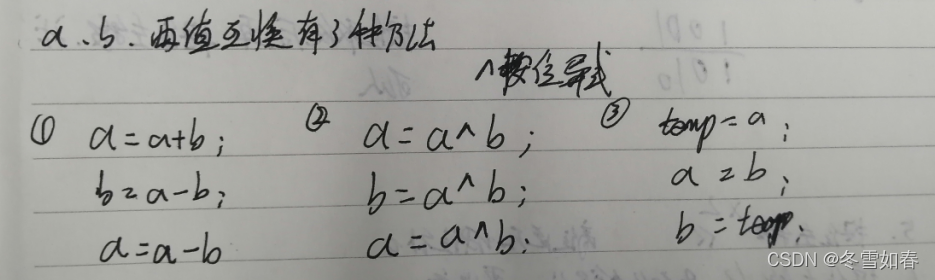 a、b、两值互换有3种方法
^按位异或
① a = a+b ;
b = a-b ;
a = a-b
② a = a ^ b ;
b = a ^ b ;
a = a ^ b ;
③ temp = a ;
a = b ;
b = temp.
CSDN @冬雪如春